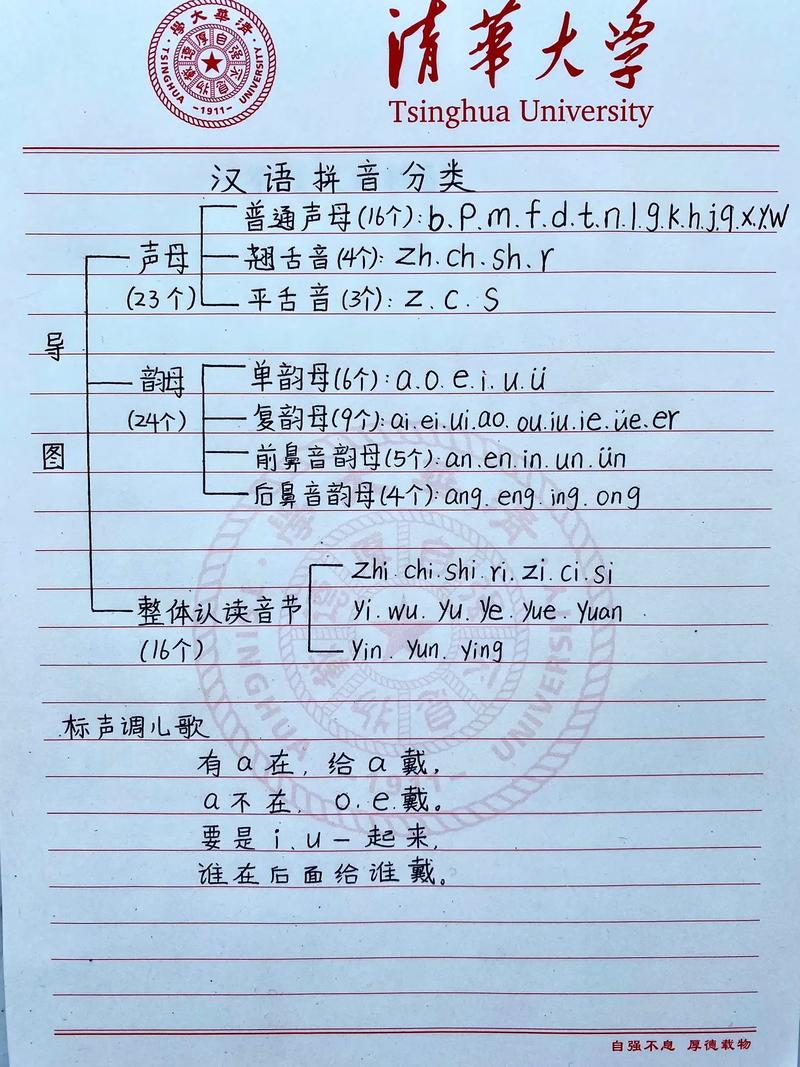 學大華清
·TSINGHUA UNIVERSITY·
自强不息 厚德載物
-1911-
清華大学
Tsinghua University
汉语拼音分类
普通声母(16个):b.p.m.f.d.t.n.l.g.k.h.j.q.x.y.w
声母
翘舌音(4个):zh.ch.sh.r
(23个)
平舌音(3个):z.c.s
导
单韵母(6个):a.o.e.i.u.ü
韵母
(24个)
复韵母(9个):ai.ei.ui.ao.ou.iu.ie.üe.er
图
前鼻音韵母(5个):an.en.in.un.ün
后鼻音韵母(4个):ang.eng.ing.ong
zhi.chi.shi.ri.zi.ci.si
整体认读音节
yi.wu.yu.ye.yue.yuan
(16个)
yin.yun.ying
标声调儿歌
有a在,给a戴,
a不在,o.e.戴。
要是i、u一起来,
谁在后面给谁戴。
自强不息 厚德载物